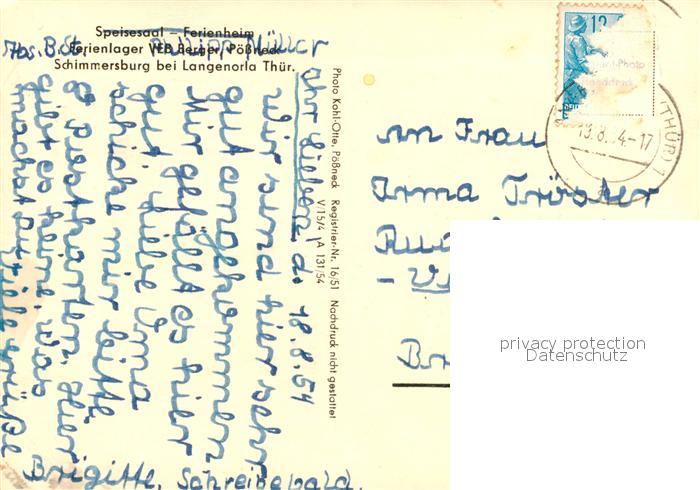 Speisesaal – Ferienheim
Ferienlager VEB Berger, Pößneck
Schimmersburg bei Langenorla Thür.
Abs. B. St. Müller
Ihr Lieben d. 18.8.54
wir sind hier sehr
gut angekommen
Mir gefällt es hier
gut. Liebe Oma
schicke mir bitte
8 Postkarten. Hier
gibt es keine. was
machst du? Viele Grüße
Brigitte. Schreibe bald.
Photo Kohl-Otte, Pößneck Registrier-Nr. 16/51 Nachdruck nicht gestattet
V/15/4 A 131/54
12
(THÜR) 1
19.8.54.-17
An Frau
Irma Tröster
privacy protection
Datenschutz